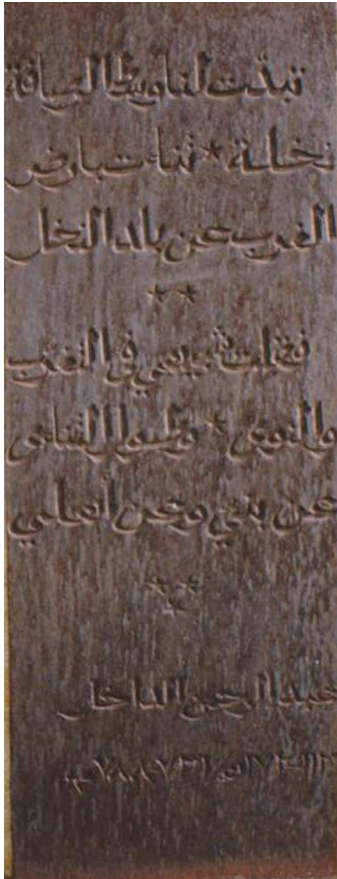 تبدّت لنا وسط الرصافة
نخلة * تناءت بارض
الغرب عن بلد النخل
* *
فقلت شبيهي في التغرّب
والنوى * وطول التنائي
عن بنيّ وعن أهلي
* * *
عبد الرحمن الداخل
١١٣-١٧٢ه/٧٣١-٧٨٨م